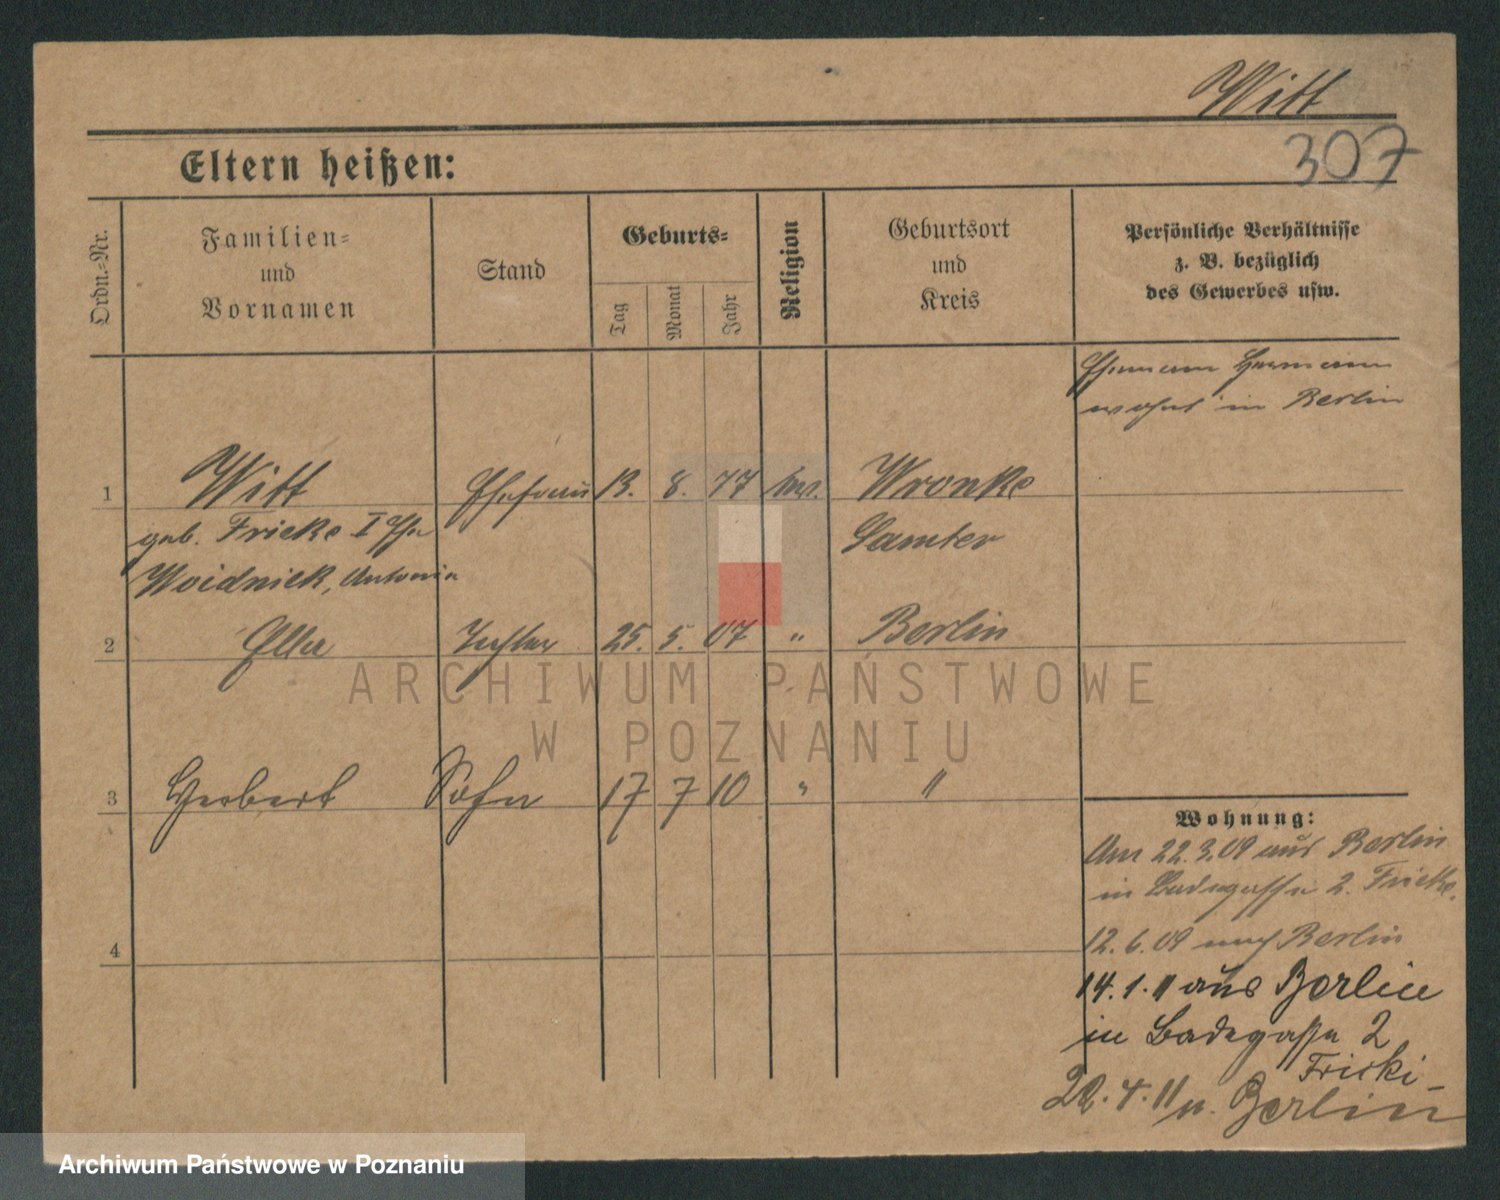 Witt
307
Eltern heißen:
Ordn.=Nr.
Familien=
und
Vornamen
Stand
Geburts=
Tag
Monat
Jahr
Religion
Geburtsort
und
Kreis
Persönliche Verhältnisse
z. B. bezüglich
des Gewerbes usw.
Ehemann Hermann
wohnt in Berlin
1 Witt Ehefrau 13. 8. 77 Wronke
geb. Fricke I Ehe Samter
Woidniek, Antonie
2 Ella Tochter 25. 5. 07 " Berlin
ARCHIWUM PAŃSTWOWE
W POZNANIU
3 Herbert Sohn 17 7 10 " "
Wohnung:
Am 22.3.09 aus Berlin
in Badegasse 2. Fricke.
4
12.6.09 nach Berlin
14.1.11 aus Berlin
in Badegasse 2
Fricke
22.4.11 n. Berlin
Archiwum Państwowe w Poznaniu